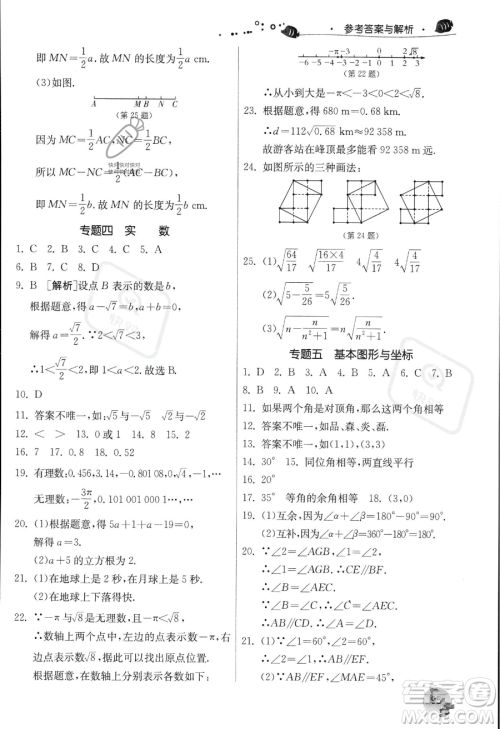 参考答案与解析
即 MN=1/2 a. 故 MN 的长度为 1/2 a cm.
(3)如图.
A M B N C
(第 25 题)
因为 MC=1/2 AC, NC=1/2 BC,
所以 MC-NC=1/2 AB=1/2 b,
即 MN=1/2 b. 故 MN 的长度为 1/2 b cm.
专题四 实 数
1. C 2. B 3. C 4. C 5. A
6. B 7. C 8. D
9. B [解析]设点 B 表示的数是 b,
根据题意,得 a-√7=b,
解得 a=√7/2. ∵2<√7<3,
∴1<√7/2<2,故选 B
10. D
11. 答案不唯一,如√5与-√5
12. < > 13. 0 或 1 14. 8 15. 2
16. 7 17. 0.8 18. 0.52
19. 有理数:0.456,3.14,-0.801 08,4,-1,…
无理数:-3π/2,0.101 001 000 1,…
20. (1)根据题意,得 5a+1+a-19=0,
解得 a=3.
(2)a+5 的立方根为 2.
21. (1)在地球上是 2 秒,在月球上是 5 秒.
(2)在地球上下落得快.
22. ∵-π与√8是无理数,
∴数轴上两个点中,左边的点表示数-π,
右边的点表示数√8,
∴数轴上可以找出表示原点位置.
-π -√3 √8
-6 -5 -4 -3 -2 -1 0 1 2 3 4 5 6
(第 22 题)
∴从小到大是-π<-3<0<2<√8
23. 根据题意,得 680 m=0.68 km.
∴d=112√0.68≈92 358 m
故游客站在峰顶最多能看 92 358 m
24. 如图所示的三种画法:
(第 24 题)
25. (1)√(64/17) √((16×4)/17) √(4/17)
(2)√(5-5/26)=5√(5/26)
(3)√(n-n/(n²+1))=n√(n/(n²+1))
专题五 基本图形与坐标
1. D 2. A 3. B 4. C 5. C 6. C 7. B
8. B 9. A 10. B
11. 如果两个角是对顶角,那么这两个角相等
12. 答案不唯一,如品、森、焱、磊.
13. 答案不唯一,如(1,1),(3,3)
14. 30° 15. 同位角相等,两直线平行
16. 20°
17. 35° 等角的余角相等 18. (3,0)
19. (1)互余,因为∠α+∠β=90°
(2)互补,因为∠α+∠β=180°
20. ∵∠2=∠AGB,∠1=∠AGB,
∴∠1=∠2,∴CD∥EF.
∵∠2=∠AGB,
∴AB∥CD,∴AB∥EF.
21. (1)∵∠1=60°,∠2=60°,
∴∠1=∠2,∴AB∥EF.
(2)AB∥EF,CD∥EF,
∴AB∥CD.